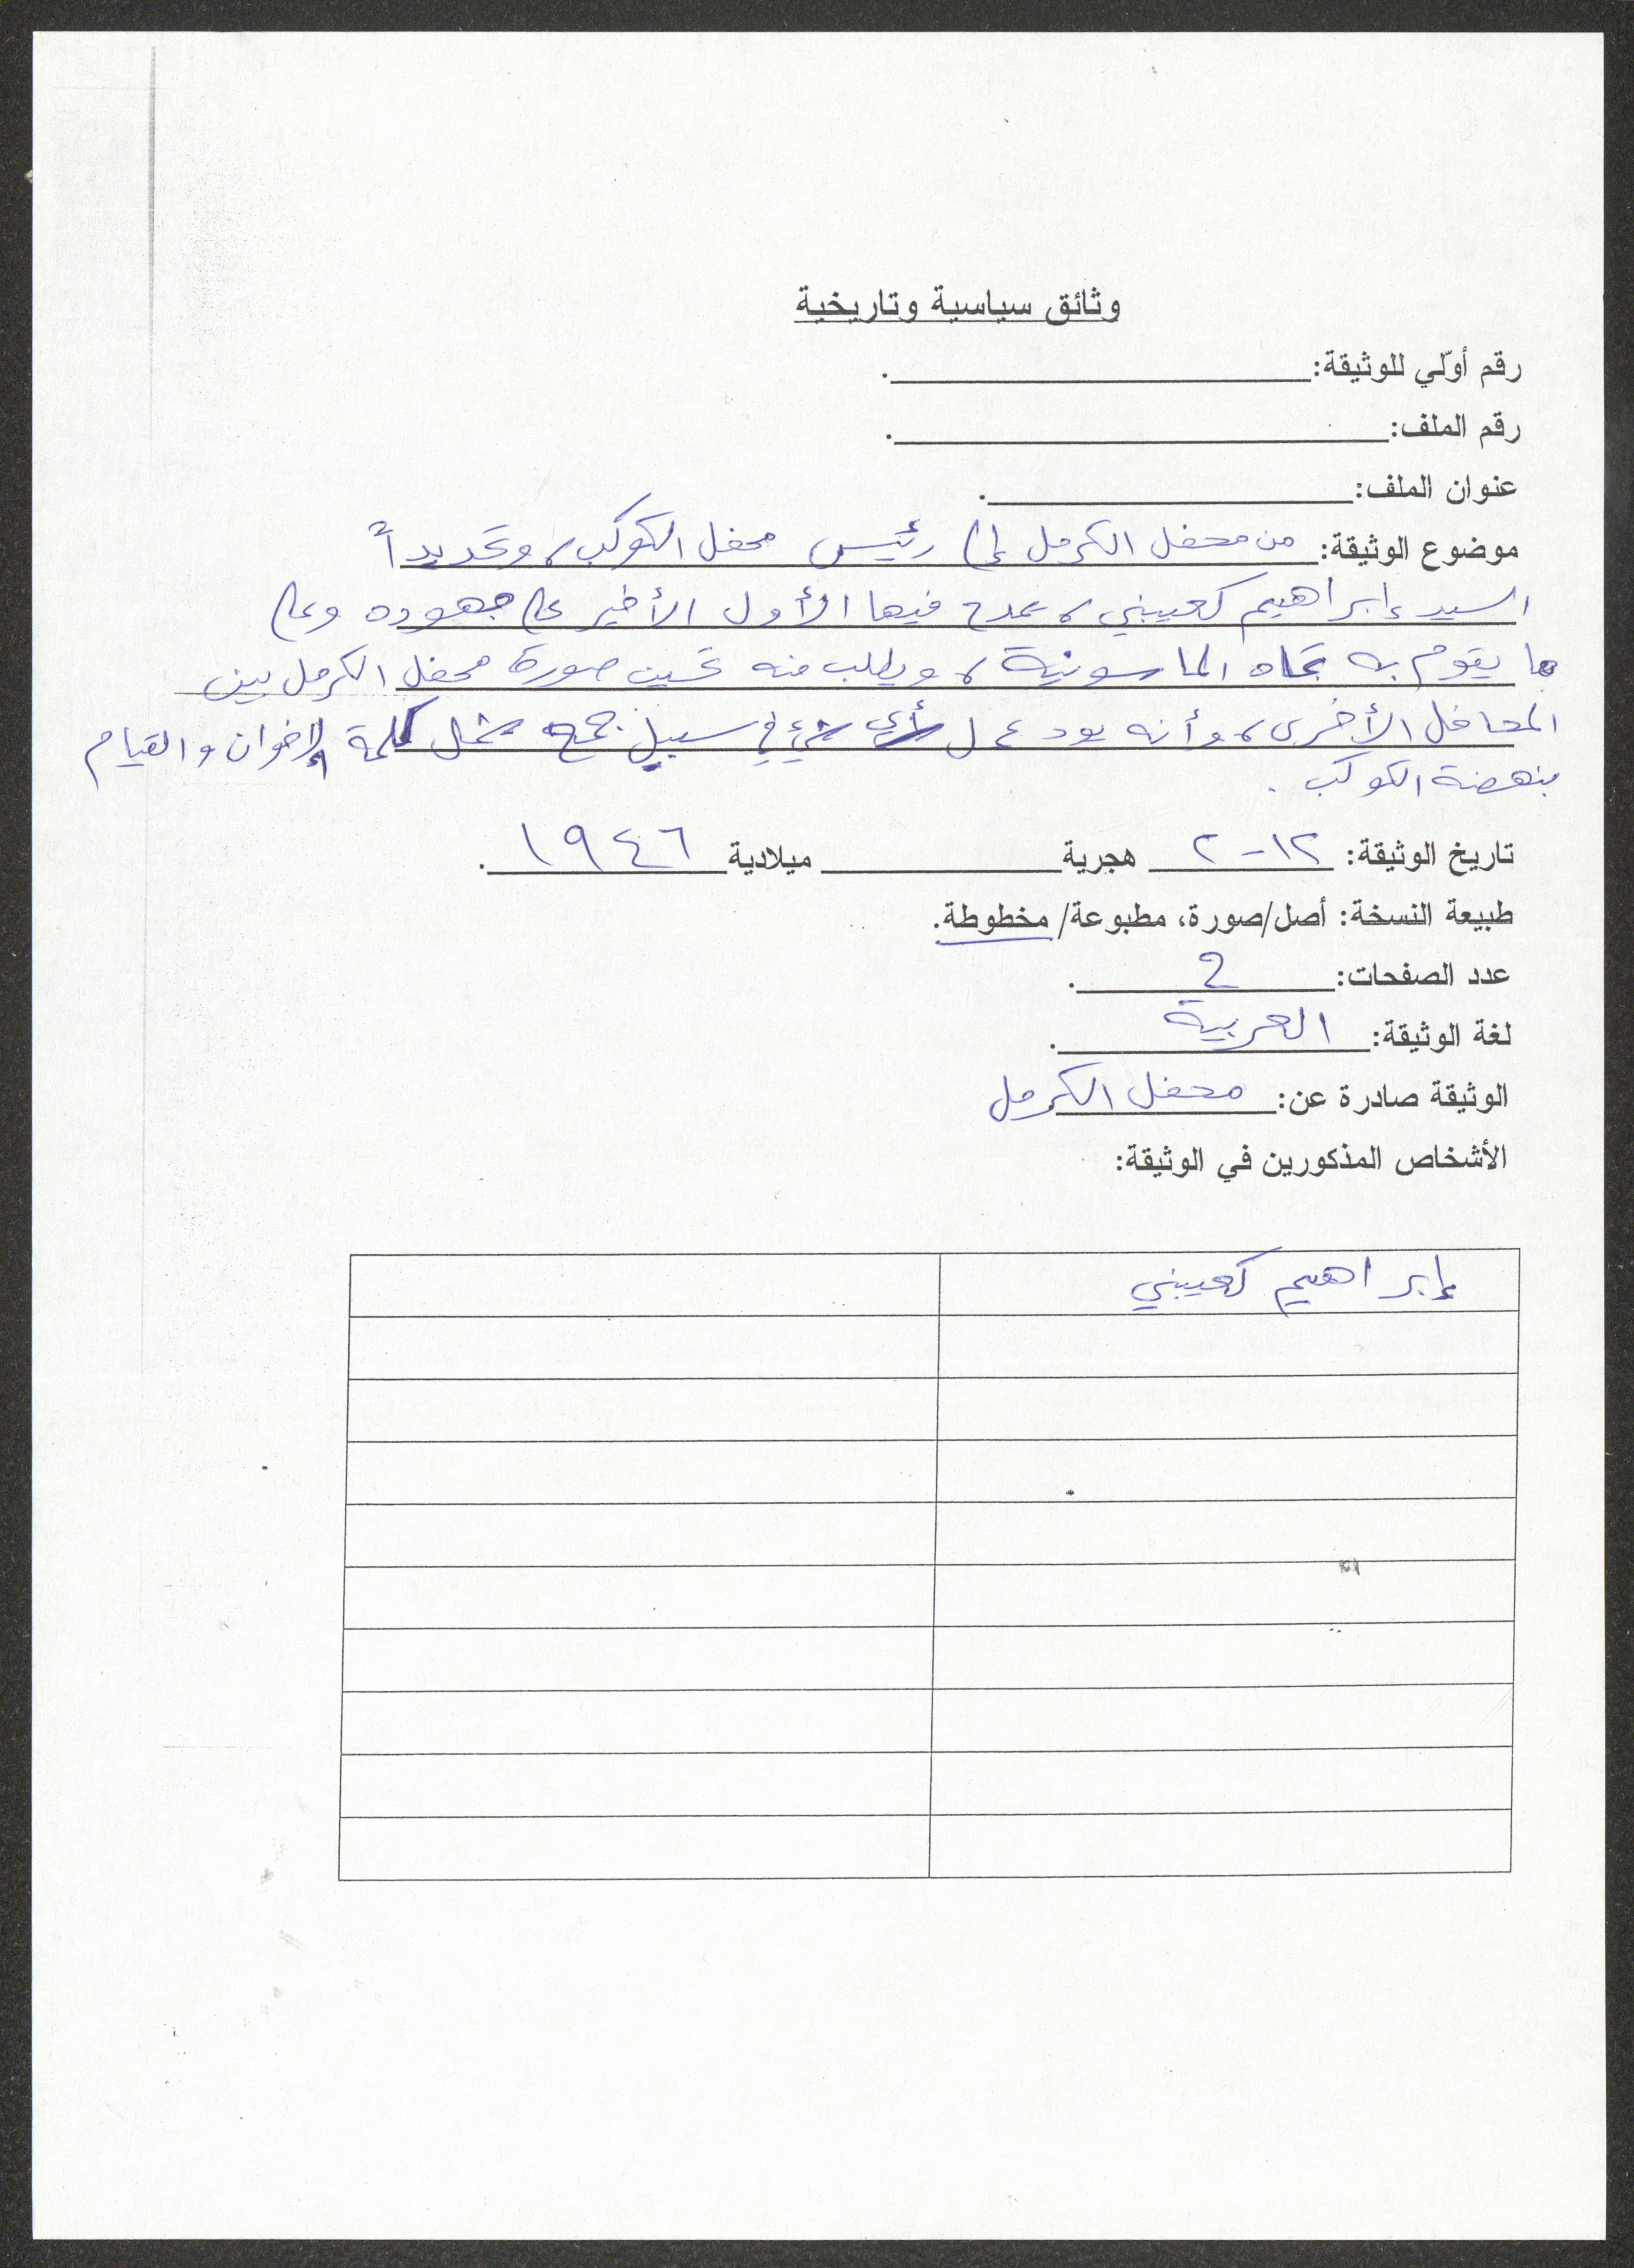 وثائق سياسية وتاريخية
رقم أولّي للوثيقة: ______________.
رقم الملف: ______________.
عنوان الملف: ______________.
موضوع الوثيقة: من محفل الكرمل إلى رئيس محفل الكوكب، وتحديداً
السيد إبراهيم كعيبني، يمدح فيها الأول الأخير على جهوده وعلى
ما يقوم به تجاه الماسونية، ويطلب منه تحسين صورة محفل الكرمل بين
المحافل الأخرى، وأنه يود عمل أي شيء في سبيل جمع شمل كلمة الإخوان والقيام
بنهضة الكوكب.
تاريخ الوثيقة: ١٢-٢ هجرية ________ ميلادية ١٩٤٦.
طبيعة النسخة: أصل/صورة، مطبوعة/ مخطوطة.
عدد الصفحات: ٢.
لغة الوثيقة: العربية.
الوثيقة صادرة عن: محفل الكرمل
الأشخاص المذكورين في الوثيقة:
إبراهيم كعيبني